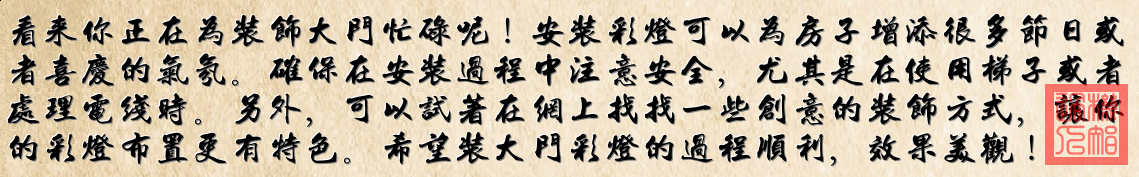 看来你正在為裝飾大門忙碌呢！安裝彩燈可以為房子增添很多節日或
者喜慶的氣氛。確保在安裝過程中注意安全，尤其是在使用梯子或者
處理電綫時。另外，可以試著在網上找找一些創意的裝飾方式，讓你
的彩燈布置更有特色。希望裝大門彩燈的過程順利，效果美觀！